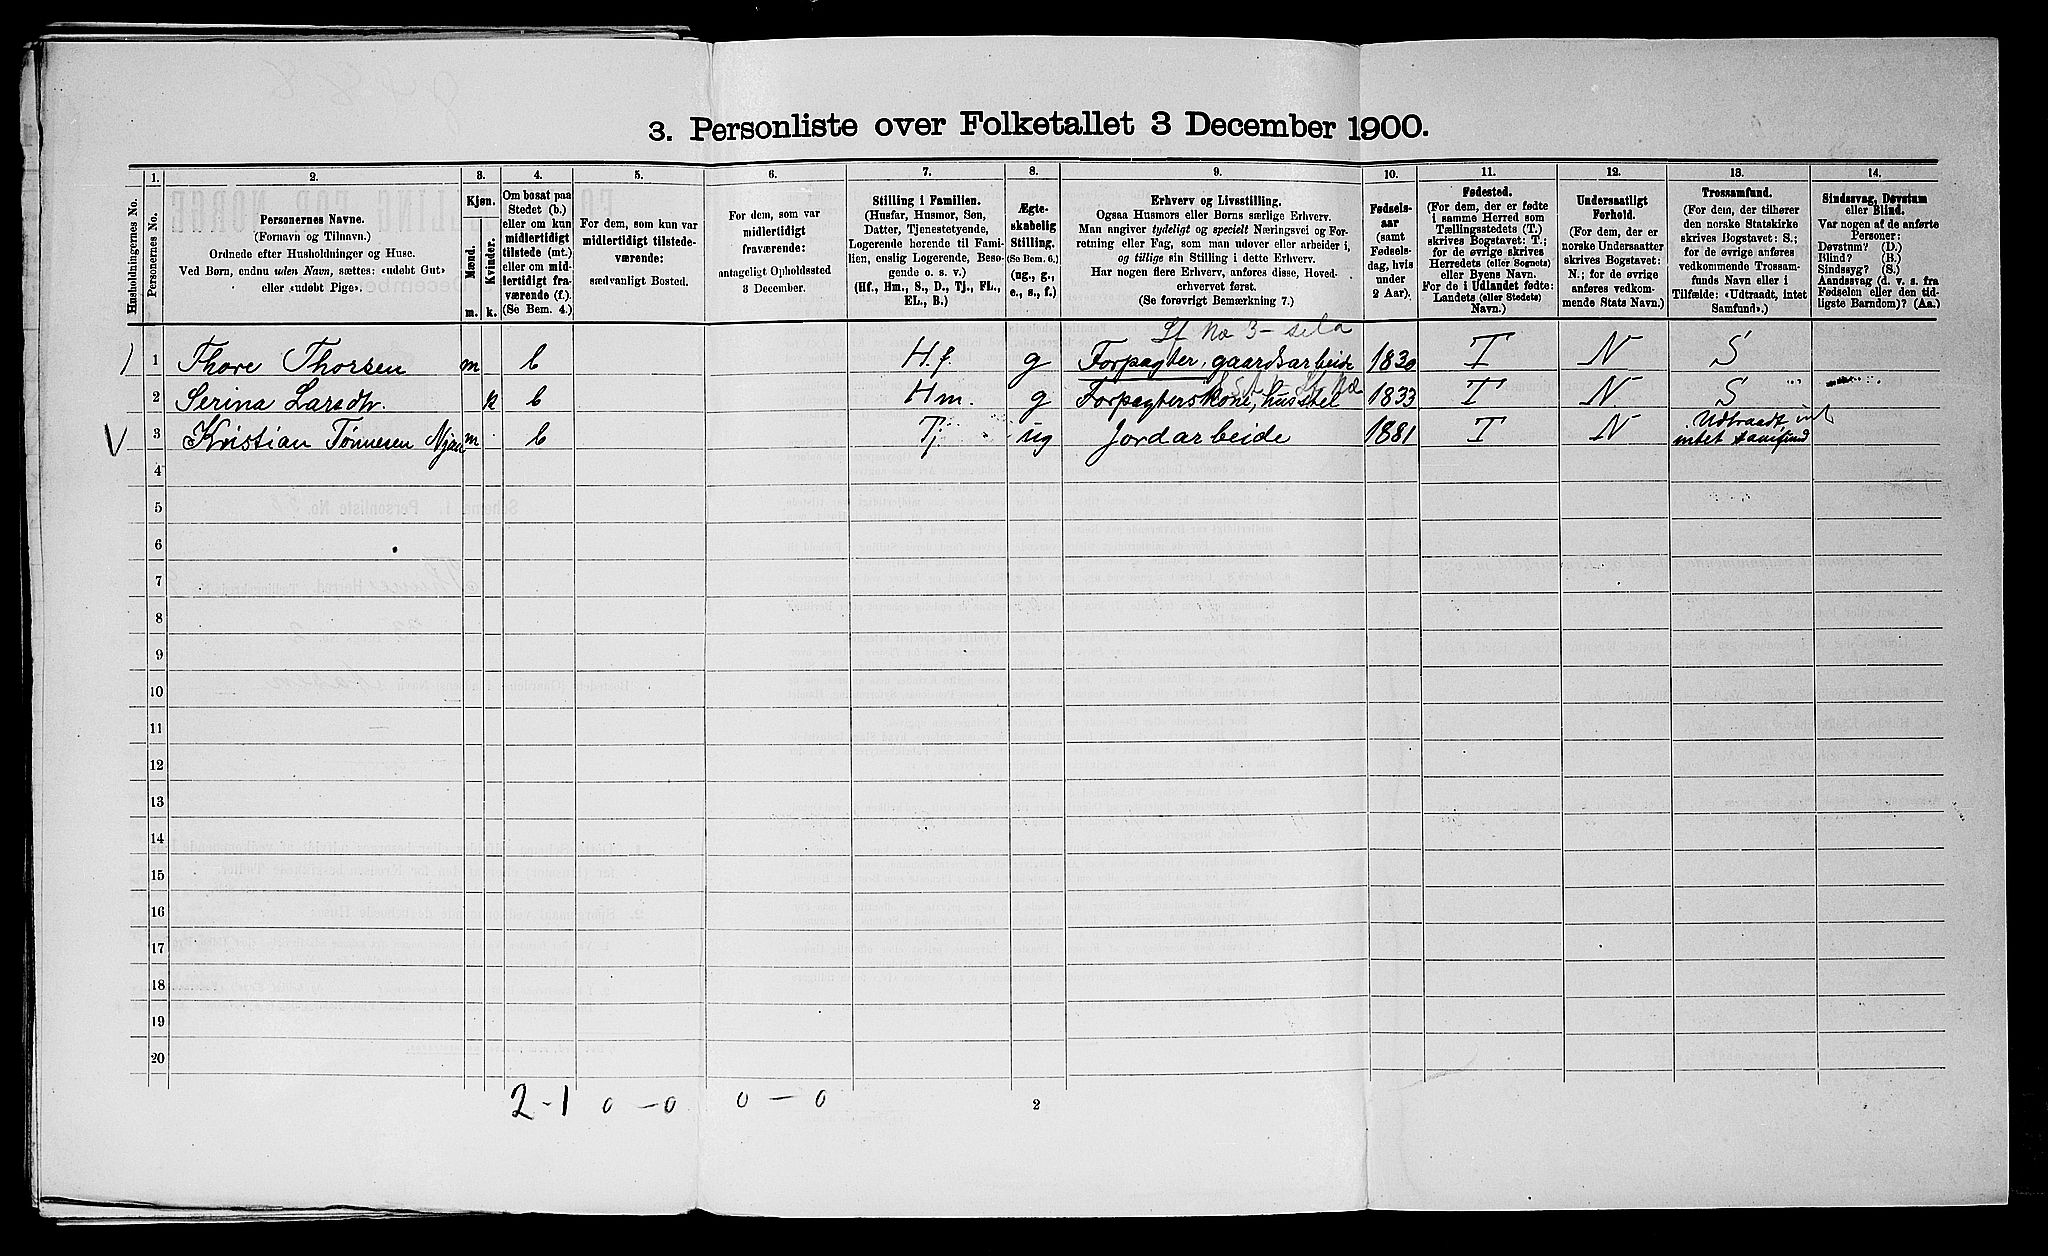 3. Personliste over Folketallet 3 December 1900.
Husholdningernes No.
1.
Personernes No.
2.
Personernes Navne.
(Fornavn og Tilnavn.)
Ordnede efter Husholdninger og Huse.
Ved Børn, endnu uden Navn, sættes: «udøbt Gut»
eller «udøbt Pige».
3.
Kjøn.
Mænd.
Kvinder.
m. k.
4.
Om bosat paa
Stedet (b.)
eller om kun
midlertidigt
tilstede (mt.)
eller om mid-
lertidigt fra-
værende (f.).
(Se Bem. 4.)
5.
For dem, som kun var
midlertidigt tilstede-
værende:
sædvanligt Bosted.
6.
For dem, som var
midlertidigt
fraværende:
antageligt Opholdssted
3 December.
7.
Stilling i Familien.
(Husfar, Husmor, Søn,
Datter, Tjenestetyende,
Logerende hørende til Fami-
lien, enslig Logerende, Besø-
gende o. s. v.)
(Hf., Hm., S., D., Tj., FL.,
EL., B.)
8.
Ægte-
skabelig
Stilling.
(Se Bem. 6.)
(ug., g.,
e., s., f.)
9.
Erhverv og Livsstilling.
Ogsaa Husmors eller Børns særlige Erhverv.
Man angiver tydeligt og specielt Næringsvei og For-
retning eller Fag, som man udover eller arbeider i,
og tillige sin Stilling i dette Erhverv.
Har nogen flere Erhverv, anføres disse, Hoved-
erhvervet først.
(Se forøvrigt Bemærkning 7.)
10.
Fødsels-
aar
(samt
Fødsels-
dag, hvis
under
2 Aar).
11.
Fødested.
(For dem, der er fødte
i samme Herred som
Tællingsstedets (T.)
skrives Bogstavet: T.;
for de øvrige skrives
Herredets (eller Sognets)
eller Byens Navn.
For de i Udlandet fødte:
Landets (eller Stedets)
Navn.)
12.
Undersaatligt
Forhold.
(For dem, der er
norske Undersaatter
skrives Bogstavet:
N.; for de øvrige
anføres vedkom-
mende Stats Navn.)
13.
Trossamfund.
(For dem, der tilhører
den norske Statskirke
skrives Bogstavet: S.;
for de øvrige anføres
vedkommende Trossam-
funds Navn eller i
Tilfælde: «Udtraadt, intet
Samfund».)
14.
Sindssvag, Døvstum
eller Blind.
Var nogen af de anførte
Personer:
Døvstum? (D.)
Blind? (B.)
Sindssyg? (S.)
Aandssvag (d. v. s. fra
Fødselen eller den tid-
ligste Barndom)? (Aa.)
1 Thore Thorsen m b Hf. g Forpagter, gaardsarbeide 1830 T N S
2 Serina Larsdtr. k b Hm. g Forpagterskone, husstel 1833 T N S
V 3 Kristian Tønnesen m b Tj ug Jordarbeide 1881 T N Udtraadt, intet samfund
4
5
6
7
8
9
10
11
12
13
14
15
16
17
18
19
20
2-1 0-0 0-0
2